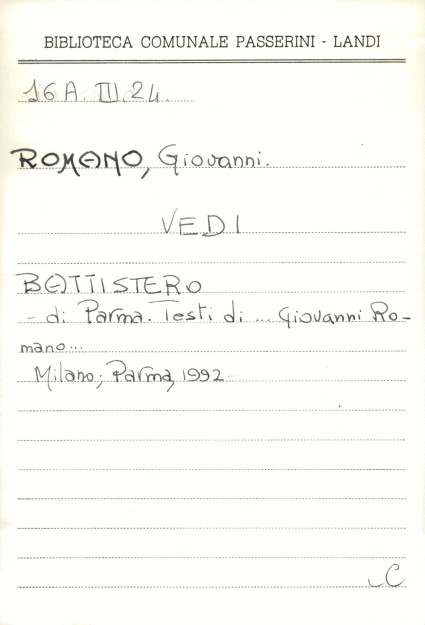 BIBLIOTECA COMUNALE PASSERINI - LANDI
16 A. III. 24.
ROMANO, Giovanni.
VEDI
BATTISTERO
- di Parma. Testi di ... Giovanni Ro-
mano...
Milano; Parma, 1992
C